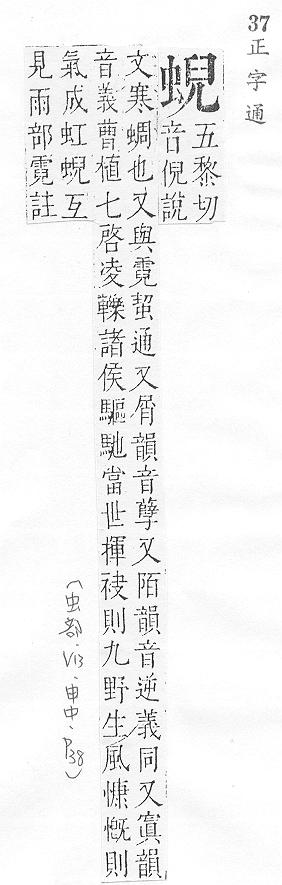 37正字通
蜺
五黎切
音倪說
文寒蜩也又與霓蛪通又屑韻音孽又陌韻音逆義同又寘韻
音義曹植七啓凌轢諸侯驅馳當世揮袂則九野生風慷慨則
氣成虹蜺互
見雨部霓註
(虫部.V13.申中.P38)